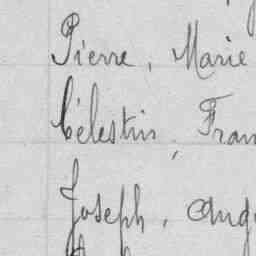 Pierre, Marie
Célestin, Fran
Joseph, Aug